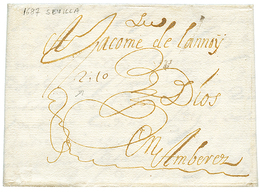 1687 SEVILLA
A Jacome de lannoy
2:10
Dios
en
Amberez